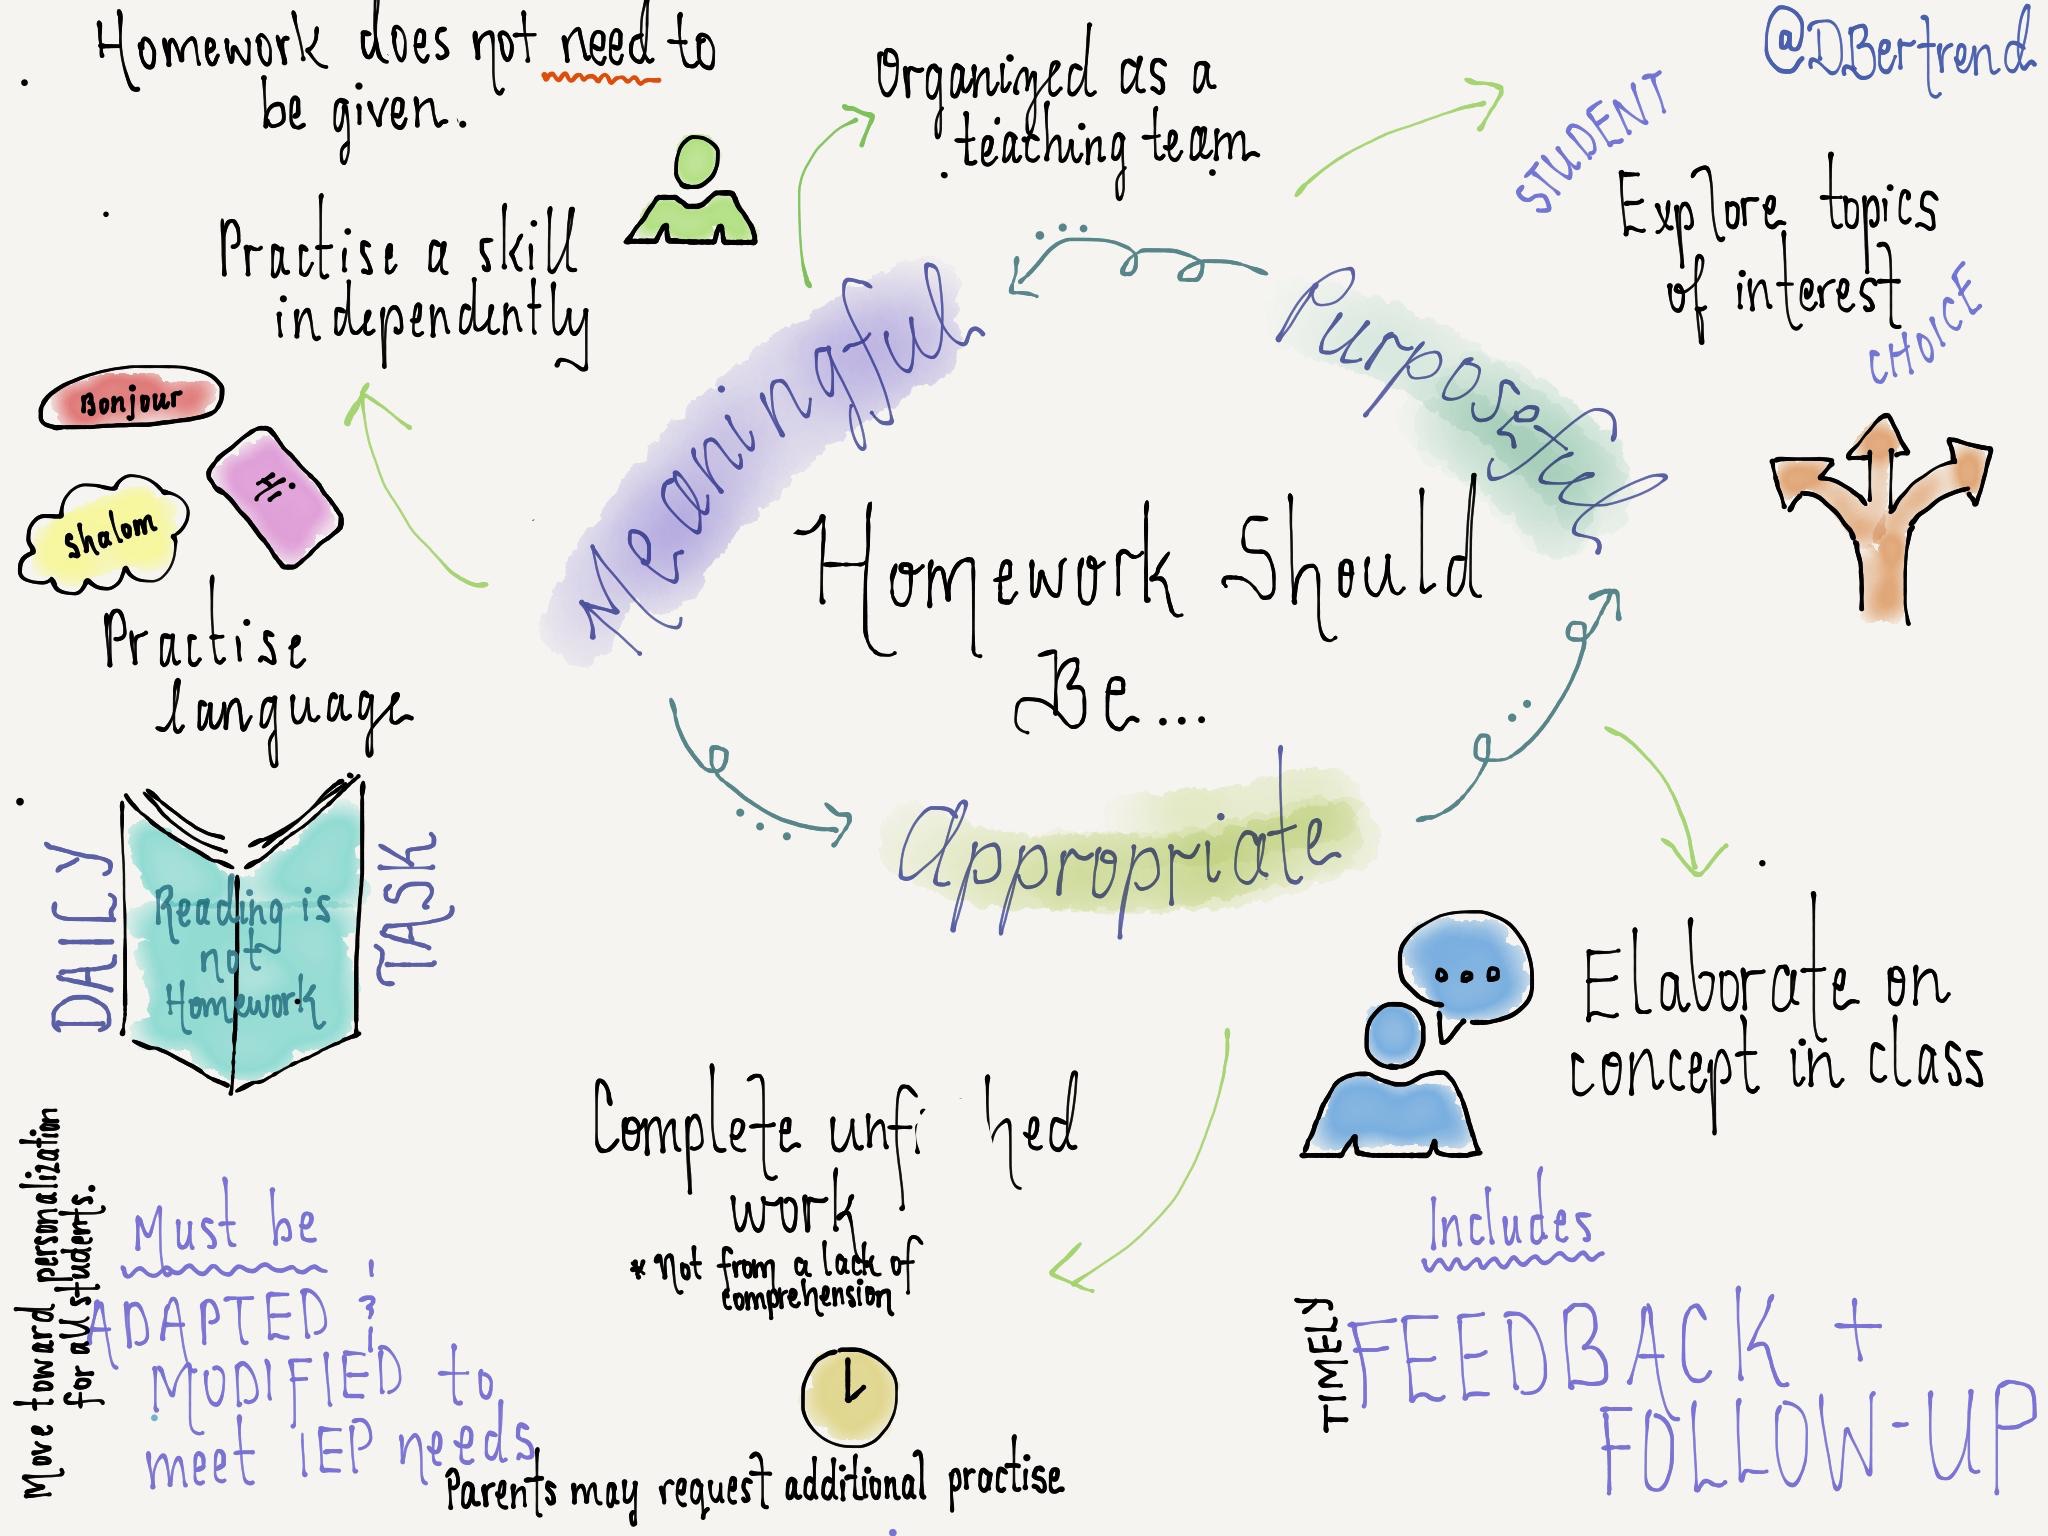 Homework does not need to
be given.
Organized as a
teaching team
@DBertrend
STUDENT
Explore topics
of interest
CHOICE
Practise a skill
independently
Bonjour
Hi
shalom
Practise
language
Meaningful
Purposeful
Homework Should
Be...
Appropriate
DAILY
Reading is
not
Homework
TASK
Elaborate on
concept in class
Complete
work
*Not from a lack of
comprehension
Parents may request additional practise
Move toward personalization
for all students.
Must be
ADAPTED &
MODIFIED to
meet IEP needs
Includes
TIMELY
FEEDBACK +
FOLLOW-UP